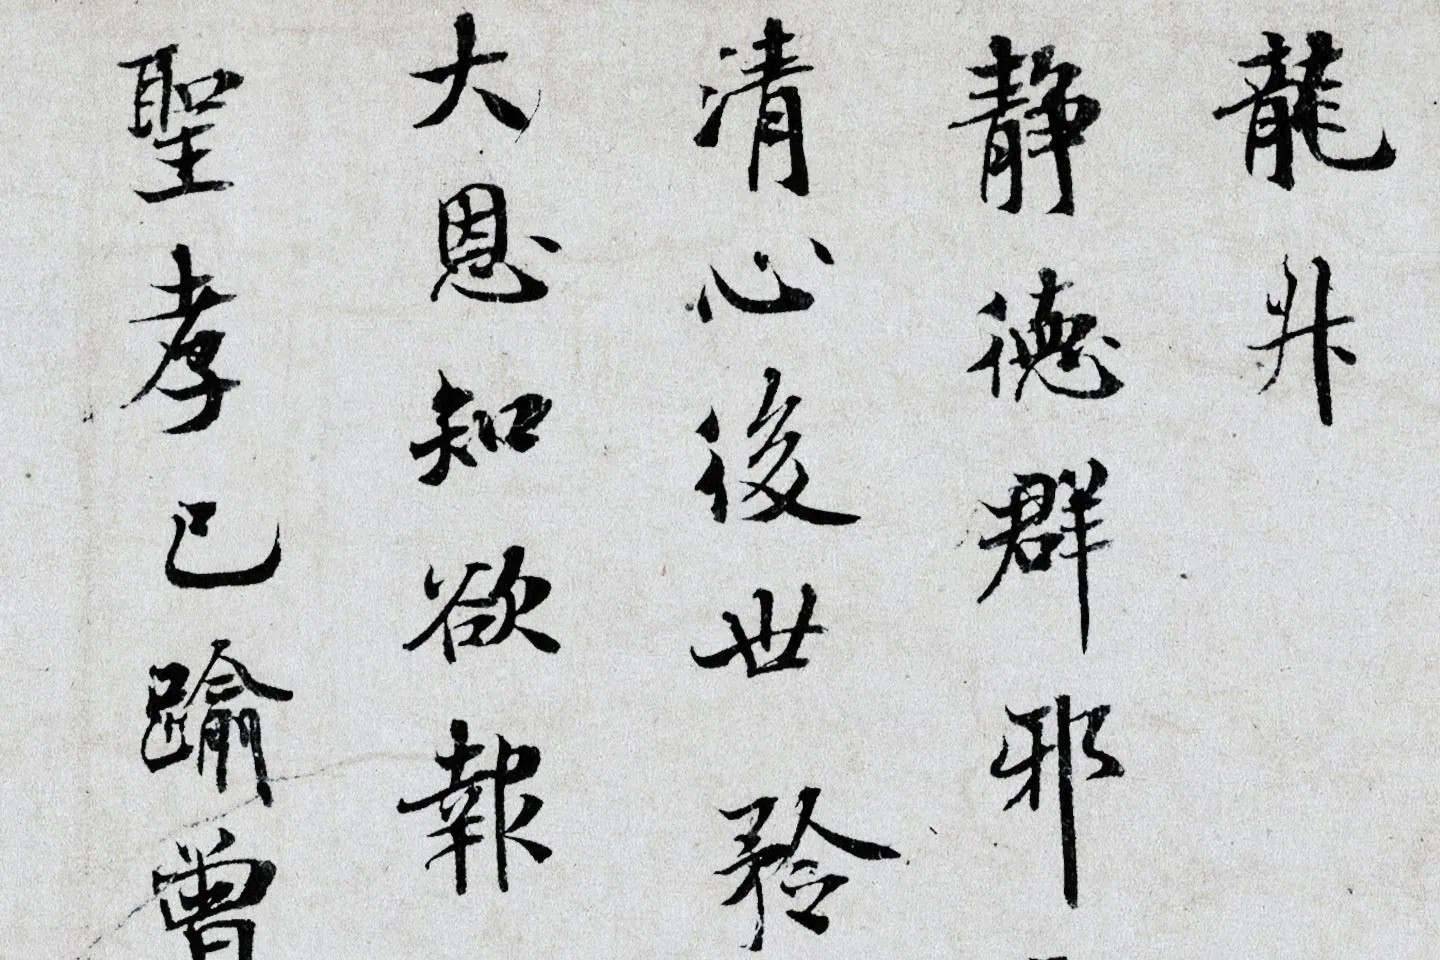 龍升
静德群邪
清心後世矜
大恩知欲報
聖孝已踰曾